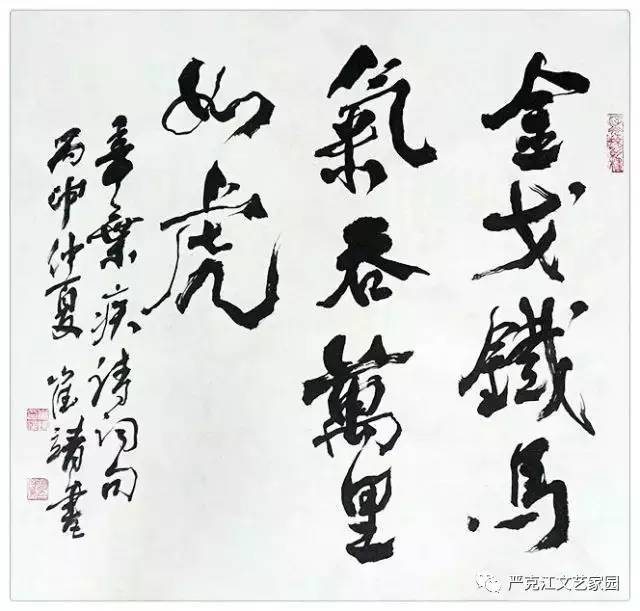 金戈鐵馬
氣吞萬里
如虎
辛棄疾诗词句
丙申仲夏 崔靖書
严克江文艺家园